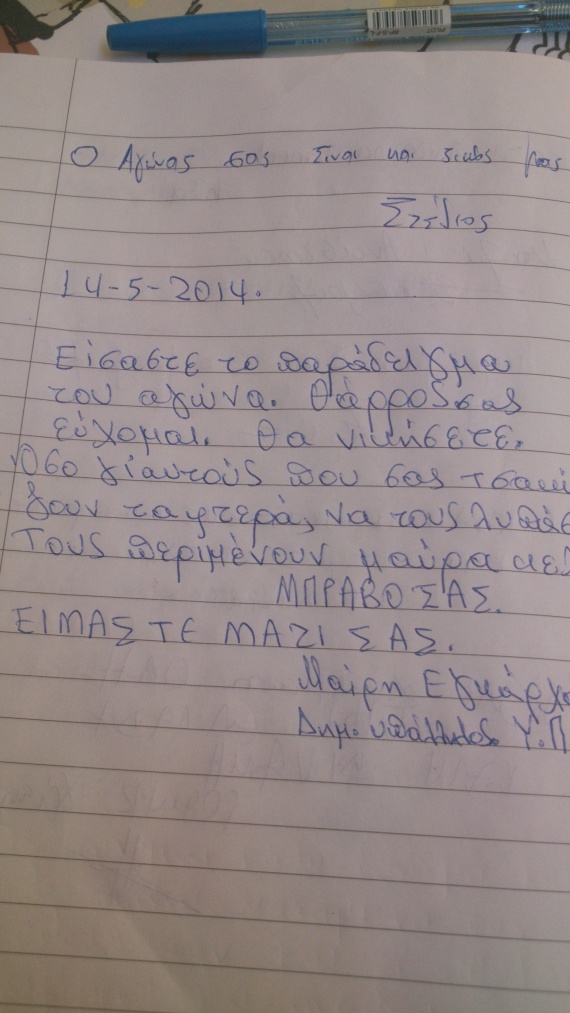 PILOT
BPS-GP
Ο Αγώνας σας Είναι και δικός μας
Στέλιος
14-5-2014.
Είσαστε το παράδειγμα
του αγώνα. Θάρρος σας
εύχομαι. Θα νικήσετε.
Όσο γι'αυτούς που σας τσακί
ζουν τα φτερά, να τους λυπάσ
Τους περιμένουν μαύρα
ΜΠΡΑΒΟ ΣΑΣ.
ΕΙΜΑΣΤΕ ΜΑΖΙ ΣΑΣ.
Μαίρη Εγκάρχο
Δημ. υπάλληλος Υ.Π